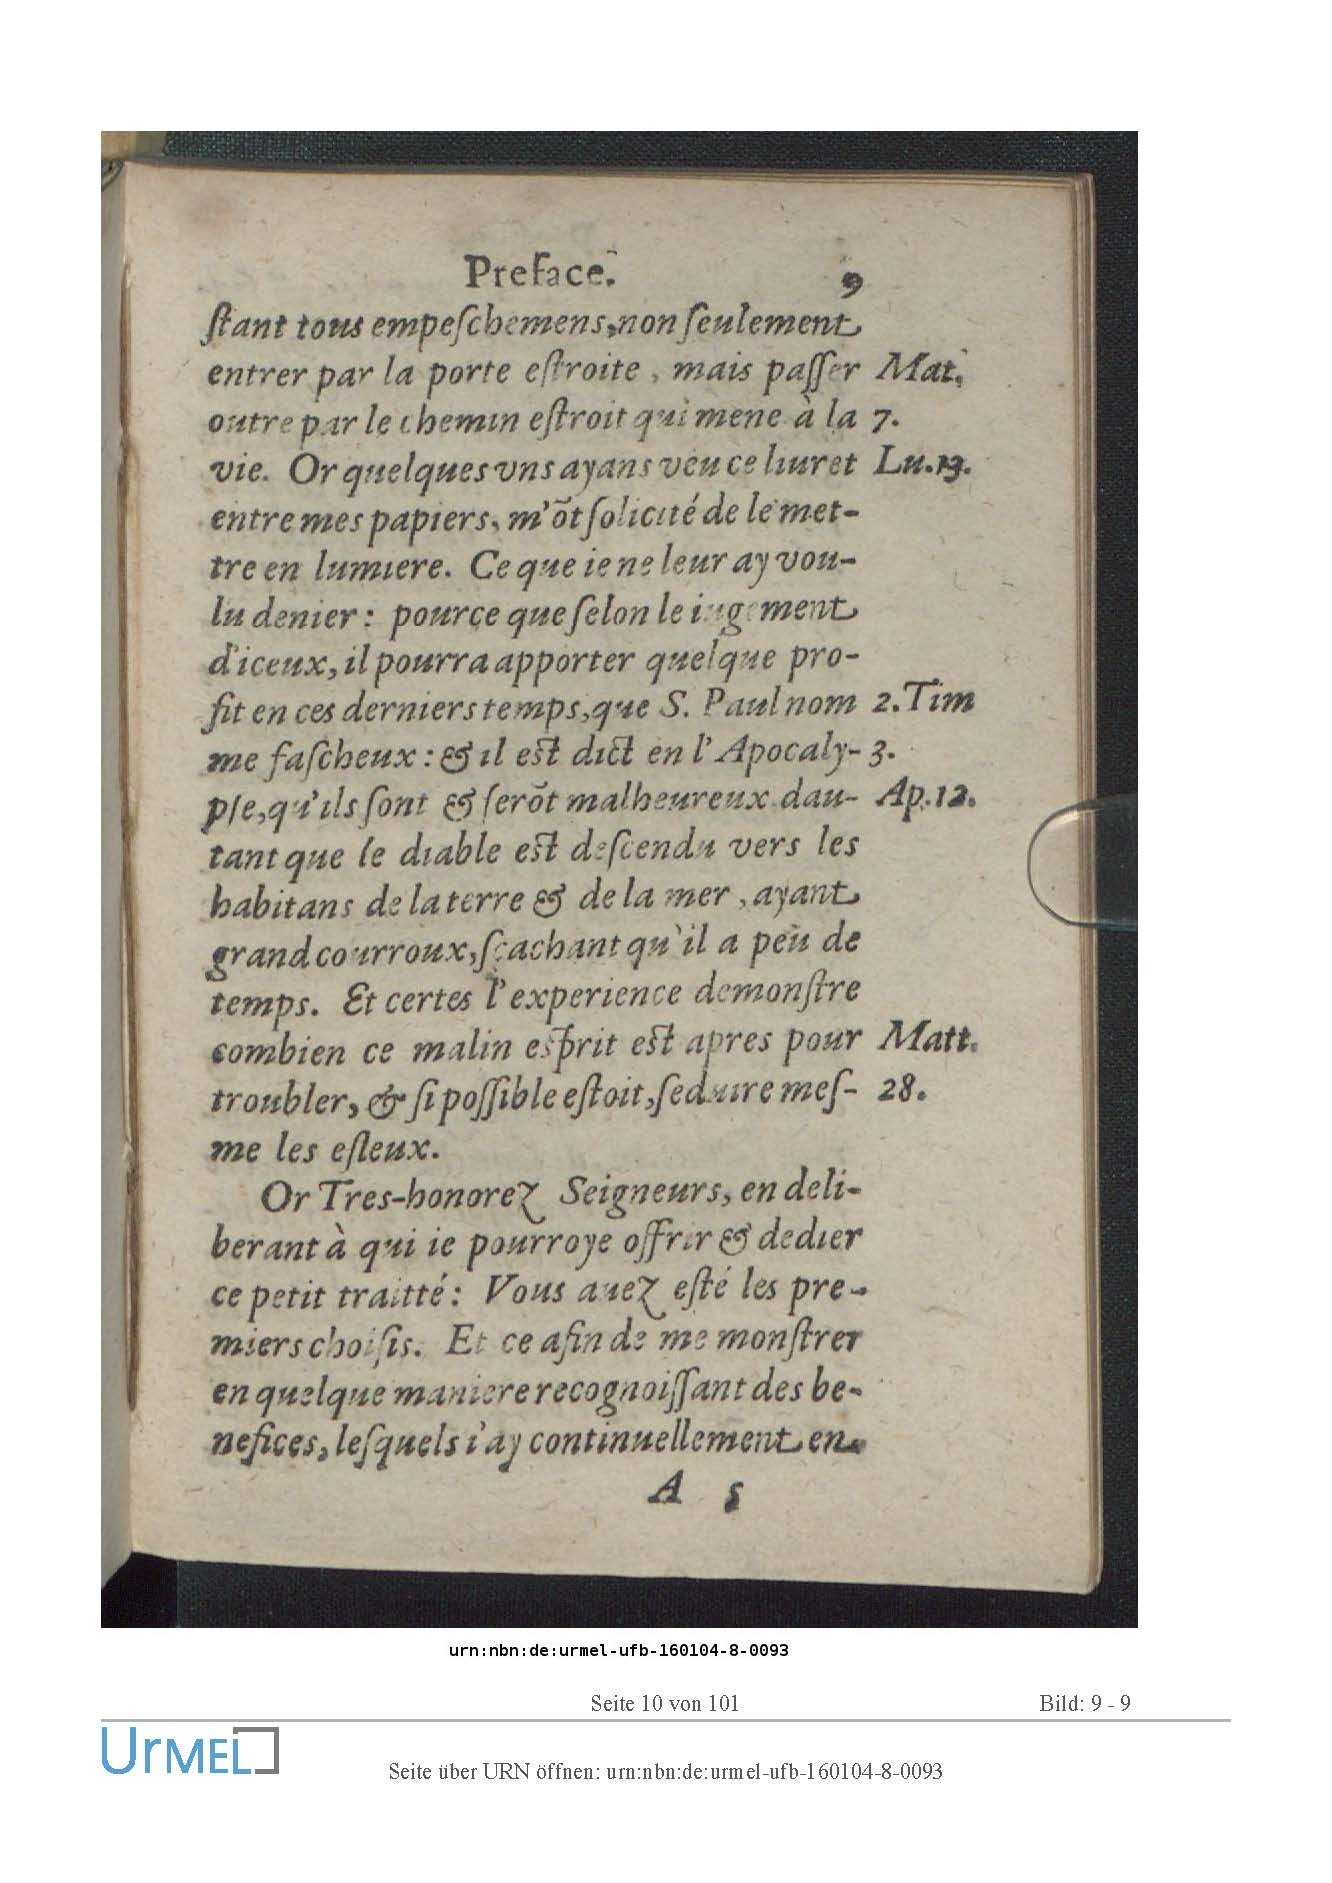 Preface. 9
ſtant tous empeſchemens, non ſeulement
entrer par la porte eſtroite, mais paſſer Mat.
outre par le chemin eſtroit qui mene à la 7.
vie. Or quelques vns ayans veu ce liuret Lu.13.
entre mes papiers, m'õt ſolicité de le met-
tre en lumiere. Ce que ie ne leur ay vou-
lu denier: pource que ſelon le iugement
d'iceux, il pourra apporter quelque pro-
fit en ces derniers temps, que S. Paul nom 2.Tim
me faſcheux: & il est dict en l'Apocaly- 3.
pſe, qu'ils ſont & ſerõt malheureux dau- Ap.12.
tant que le diable est deſcendu vers les
habitans de la terre & de la mer, ayant
grand courroux, ſçachant qu'il a peu de
temps. Et certes l'experience demonſtre
combien ce malin esprit est apres pour Matt.
troubler, & ſi poſſible eſtoit, ſeduire meſ- 28.
me les eſleux.
Or Tres-honorez Seigneurs, en deli-
berant à qui ie pourroye offrir & dedier
ce petit traitté: Vous auez eſté les pre-
miers choiſis. Et ce afin de me monſtrer
en quelque maniere recognoiſſant des be-
nefices, leſquels i'ay continuellement en-
A 5
urn:nbn:de:urmel-ufb-160104-8-0093
Seite 10 von 101 Bild: 9 - 9
UrMEL
Seite über URN öffnen: urn:nbn:de:urmel-ufb-160104-8-0093